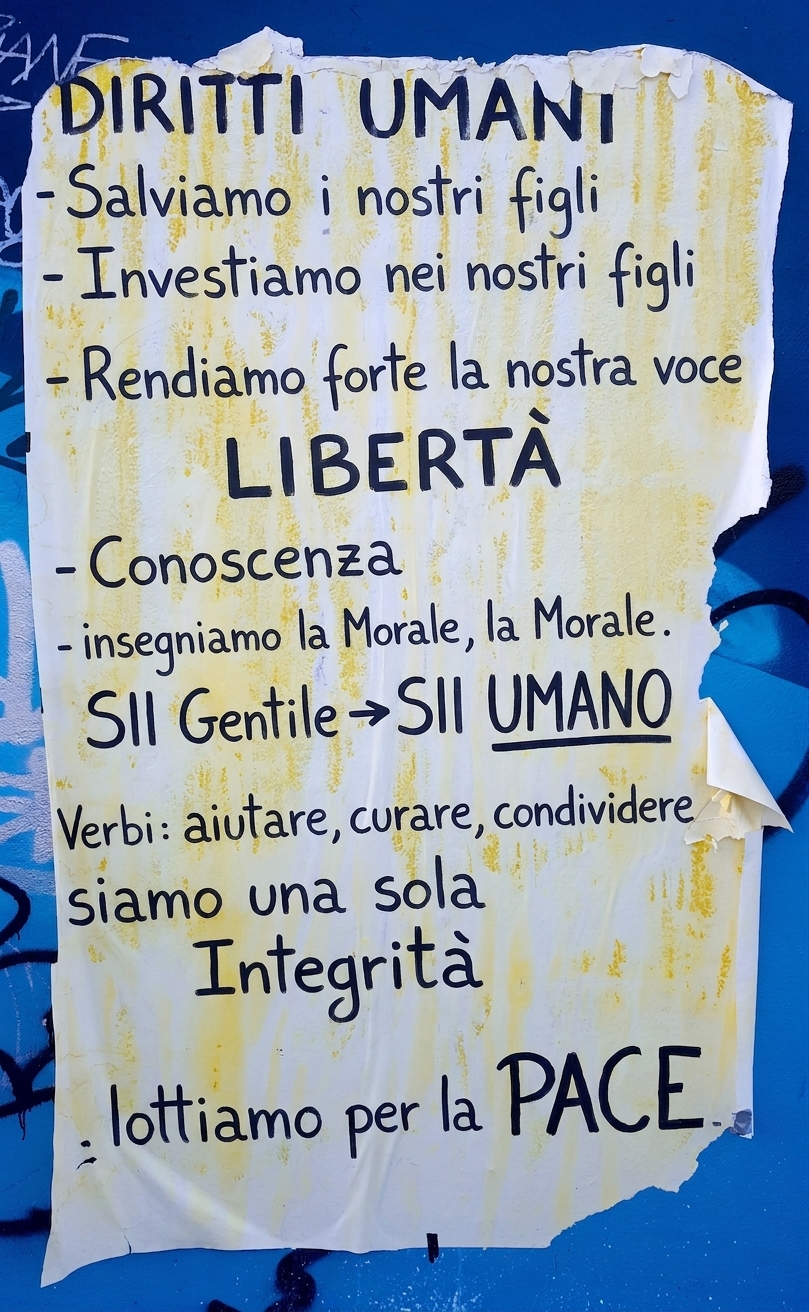 DIRITTI UMANI
- Salviamo i nostri figli
- Investiamo nei nostri figli
- Rendiamo forte la nostra voce
LIBERTÀ
- Conoscenza
- insegniamo la Morale, la Morale.
SII Gentile → SII UMANO
Verbi: aiutare, curare, condividere
siamo una sola
Integrità
. lottiamo per la PACE.